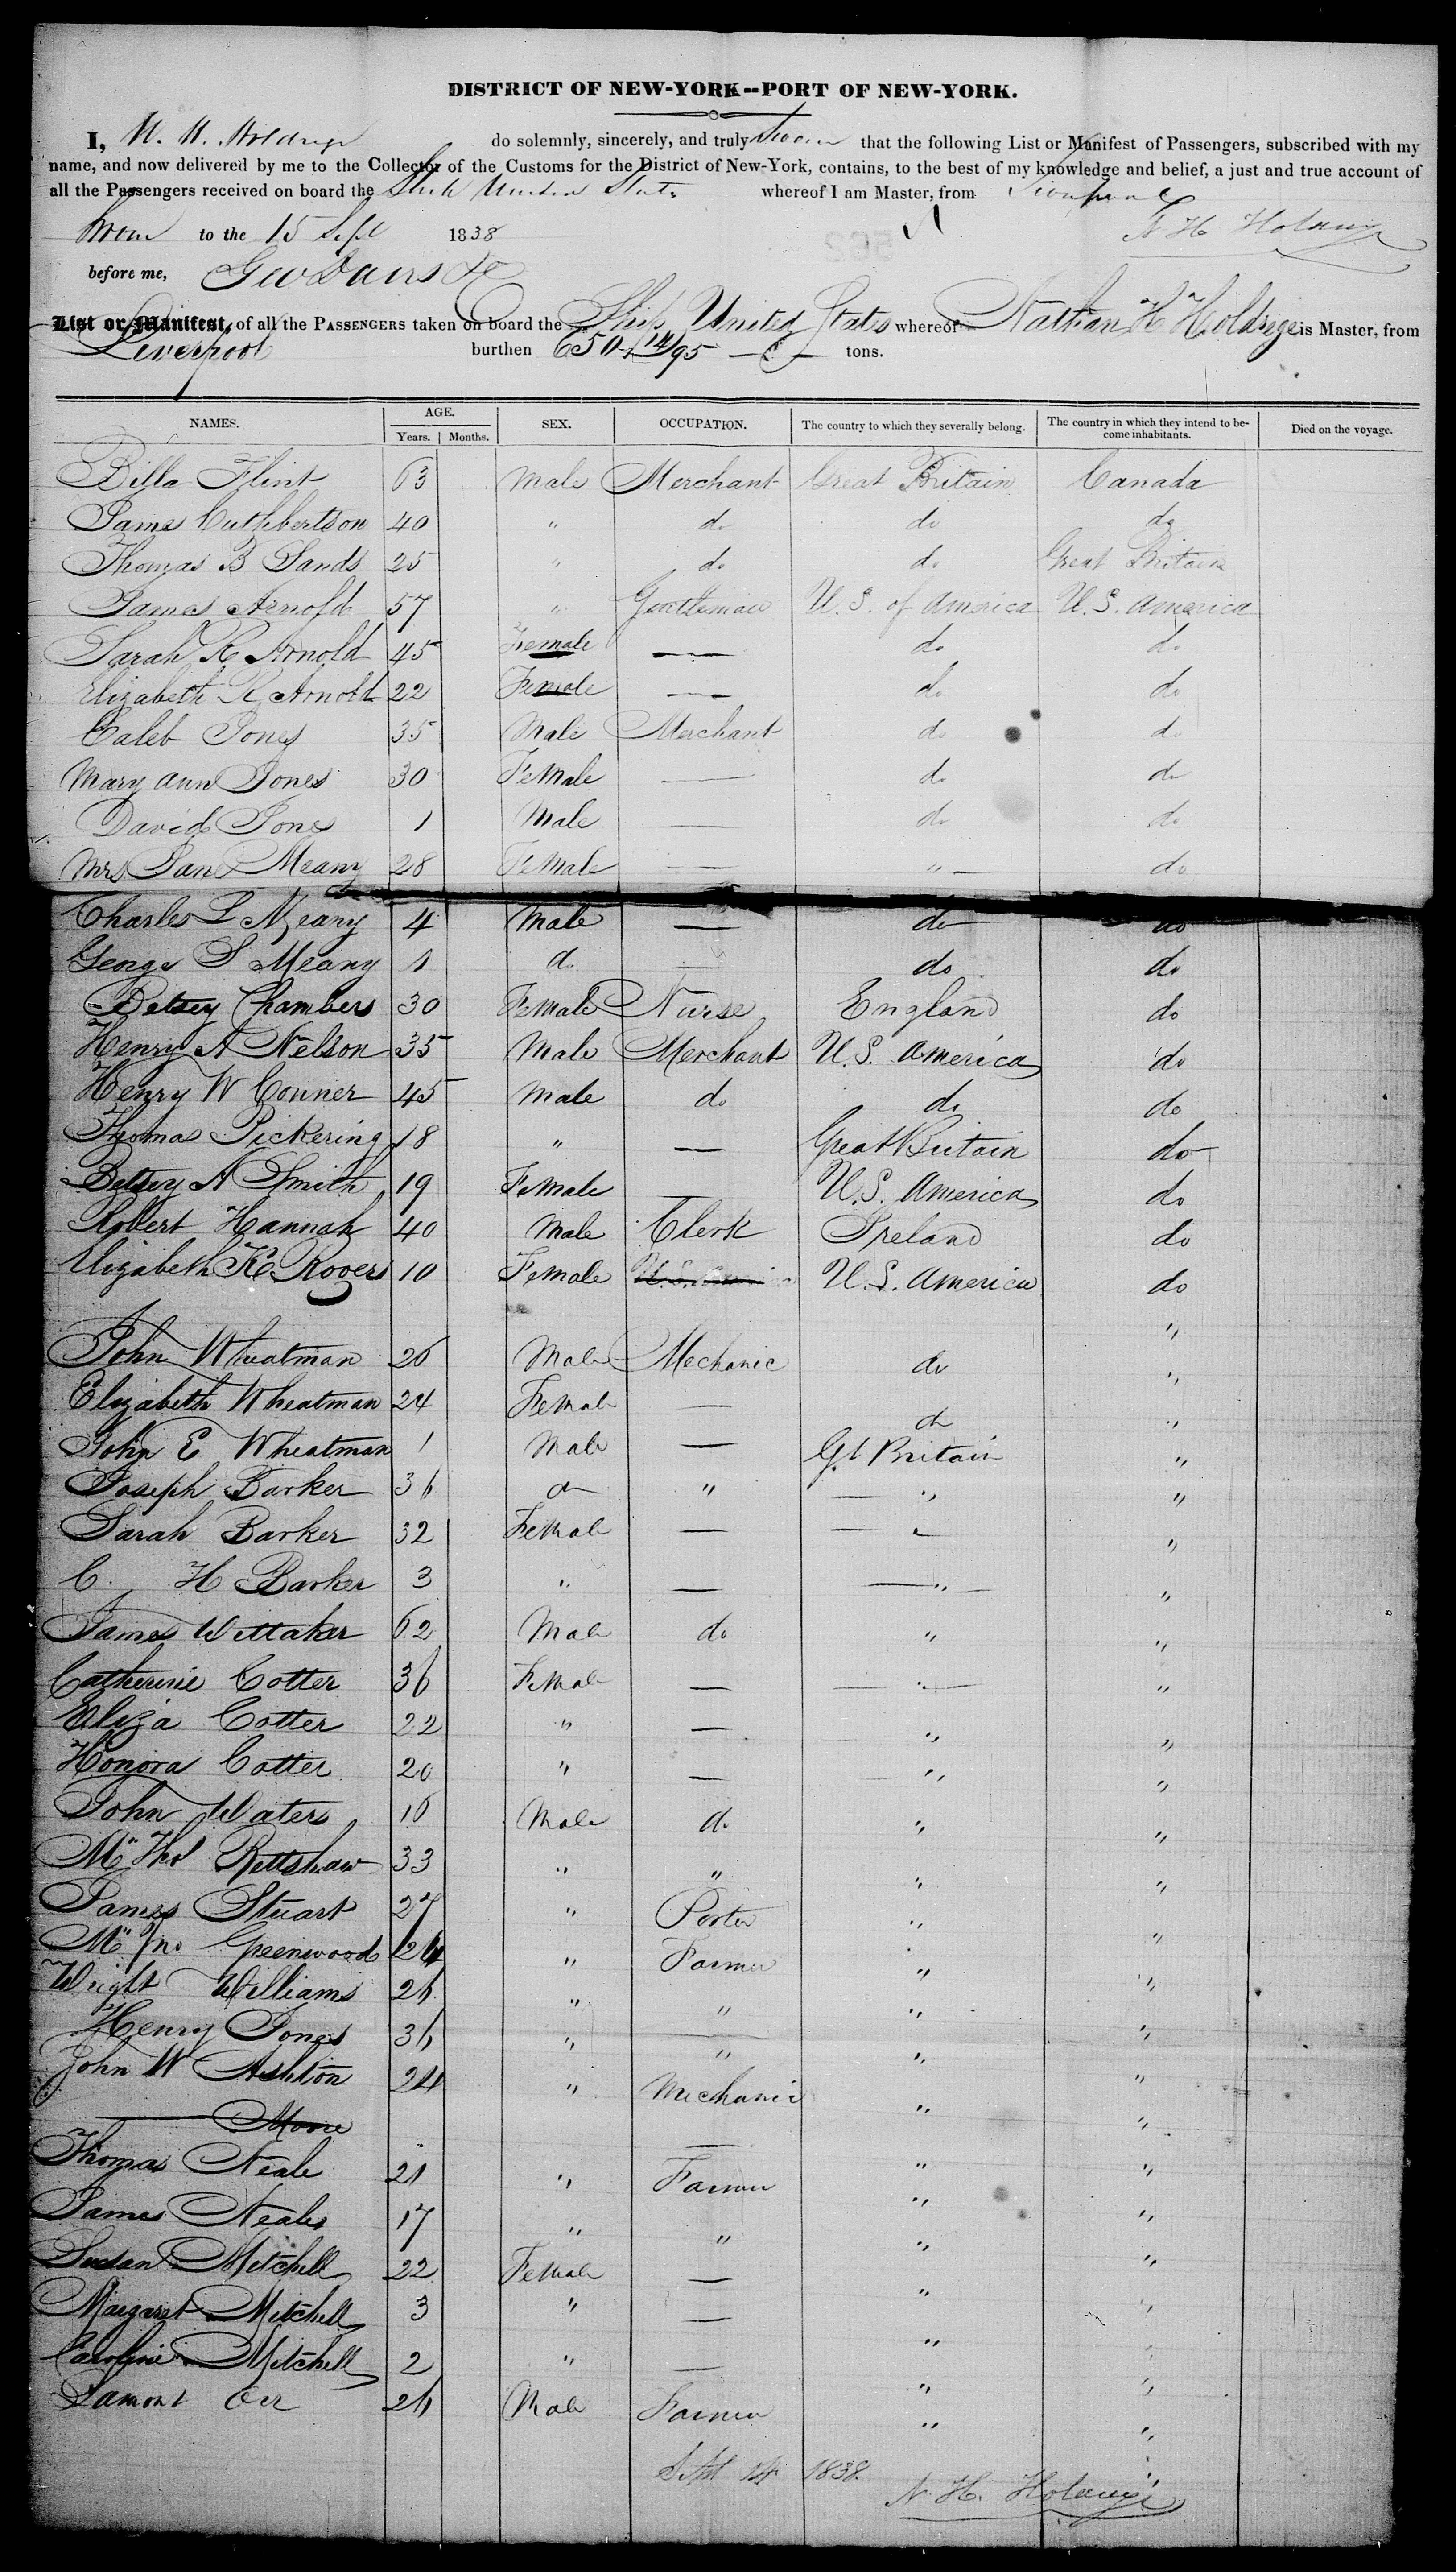 DISTRICT OF NEW-YORK--PORT OF NEW-YORK.
I, N. H. Holdrege do solemnly, sincerely, and truly Swear that the following List or Manifest of Passengers, subscribed with my
name, and now delivered by me to the Collector of the Customs for the District of New-York, contains, to the best of my knowledge and belief, a just and true account of
all the Passengers received on board the Ship United States whereof I am Master, from Liverpool
Sworn to the 15 Sept 1838
N H Holdrege
before me, Geo Davis
List or Manifest, of all the PASSENGERS taken on board the Ship United States whereof Nathan H Holdrege is Master, from
Liverpool burthen 650 14/95 tons.
NAMES. AGE. Years. Months. SEX. OCCUPATION. The country to which they severally belong. The country in which they intend to become inhabitants. Died on the voyage.
Billa Flint 63 Male Merchant Great Britain Canada
James Cuthbertson 40 " do do do
Thomas B Sands 25 " do do Great Britain
James Arnold 57 " Gentleman U.S. of America U.S. America
Sarah R Arnold 45 Female — do do
Elizabeth R Arnold 22 Female — do do
Caleb Jones 35 Male Merchant do do
Mary Ann Jones 30 Female — do do
David Jones 1 Male — do do
Mrs Jane Meany 28 Female — " do
Charles L Meany 4 Male — do do
George S Meany 1 do — do do
Betsey Chambers 30 Female Nurse England do
Henry A Nelson 35 Male Merchant U.S. America do
Henry W Conner 45 Male do do do
Thomas Pickering 18 " — Great Britain do
Betsey A Smith 19 Female — U.S. America do
Robert Hannah 40 Male Clerk Ireland do
Elizabeth K Rogers 10 Female U.S. America do
"
John Wheatman 26 Male Mechanic do "
Elizabeth Wheatman 24 Female — do "
John E Wheatman 1 Male — Gt Britain "
Joseph Barker 36 do " " "
Sarah Barker 32 Female — " "
C. H Barker 3 " — " "
James Wittaker 62 Male do " "
Catherine Cotter 36 Female — " "
Eliza Cotter 22 " — " "
Honora Cotter 20 " — " "
John Waters 16 Male do " "
Mr Thos Rettshaw 33 " " " "
James Stuart 27 " Porter " "
Mr Jno Greenwood 24 " Farmer " "
Wright Williams 26 " " " "
Henry Jones 36 " " " "
John W Ashton 24 " Mechanic " "
— Moore —
Thomas Neale 21 " Farmer " "
James Neale 17 " " " "
Susan Mitchell 22 Female — " "
Margaret Mitchell 3 " — " "
Caroline Mitchell 2 " — " "
Lamont Orr 26 Male Farmer " "
Sept 14 1838.
N. H. Holdrege